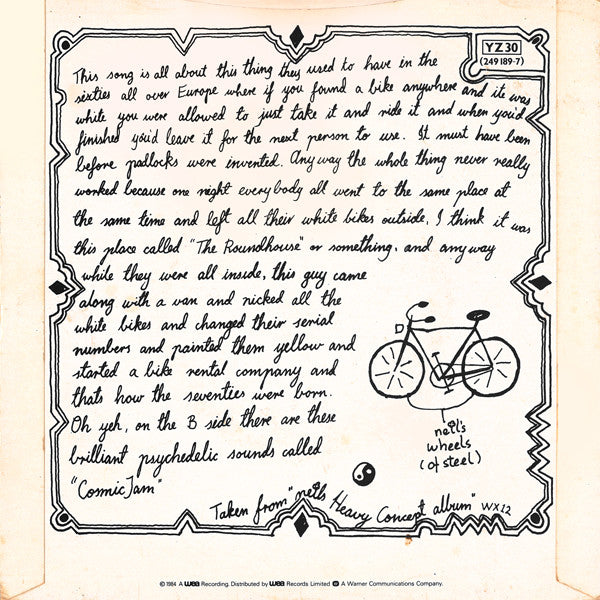 YZ30
(249 189-7)
This song is all about this thing they used to have in the
sixties all over Europe where if you found a bike anywhere and it was
white you were allowed to just take it and ride it and when you'd
finished you'd leave it for the next person to use. It must have been
before padlocks were invented. Anyway the whole thing never really
worked because one night everybody all went to the same place at
the same time and left all their white bikes outside, I think it was
this place called "The Roundhouse" or something, and anyway
while they were all inside, this guy came
along with a van and nicked all the
white bikes and changed their serial
numbers and painted them yellow and
started a bike rental company and
thats how the seventies were born.
Oh yeh, on the B side there are these
brilliant psychedelic sounds called
"Cosmic Jam"
neil's
wheels
(of steel)
Taken from "neils Heavy Concept album" WX12
℗ 1984 A wea Recording. Distributed by wea Records Limited A Warner Communications Company.